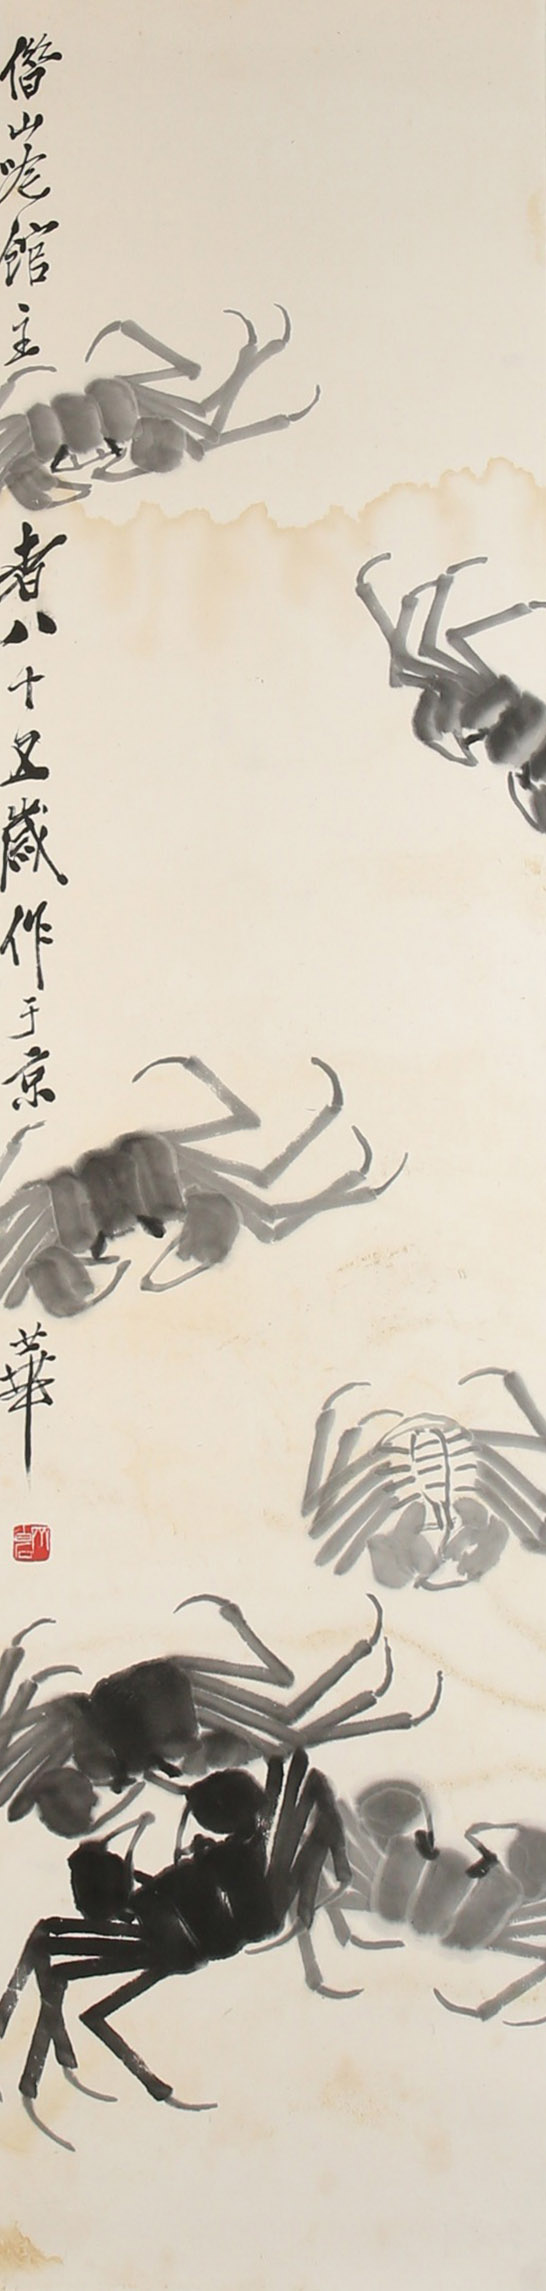 借山吟館主
者八十五歲作于京
華